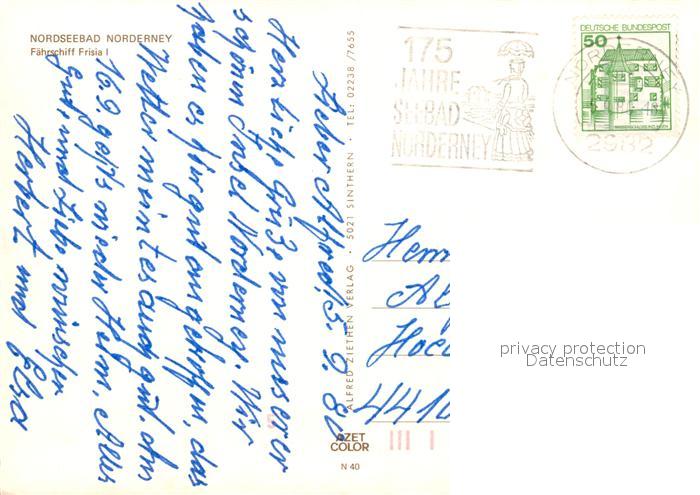 NORDSEEBAD NORDERNEY
Fährschiff Frisia I
175
JAHRE
SEEBAD
NORDERNEY
DEUTSCHE BUNDESPOST
50
2982
Lieber Alfred! 5. 9. 80
Herzliche Grüße von unserer
schönen Insel Norderney. Wir
haben es hier gut angetroffen, das
Wetter meint es auch gut. Am
16.9 geht's wieder Heim. Alles
Gute und Liebe wünschen
Herbert und Elsa
ALFRED ZIETHEN VERLAG · 5021 SINTHERN · TEL: 02238 / 7655
Herrn
Al
441
AZET
COLOR
N 40
privacy protection
Datenschutz